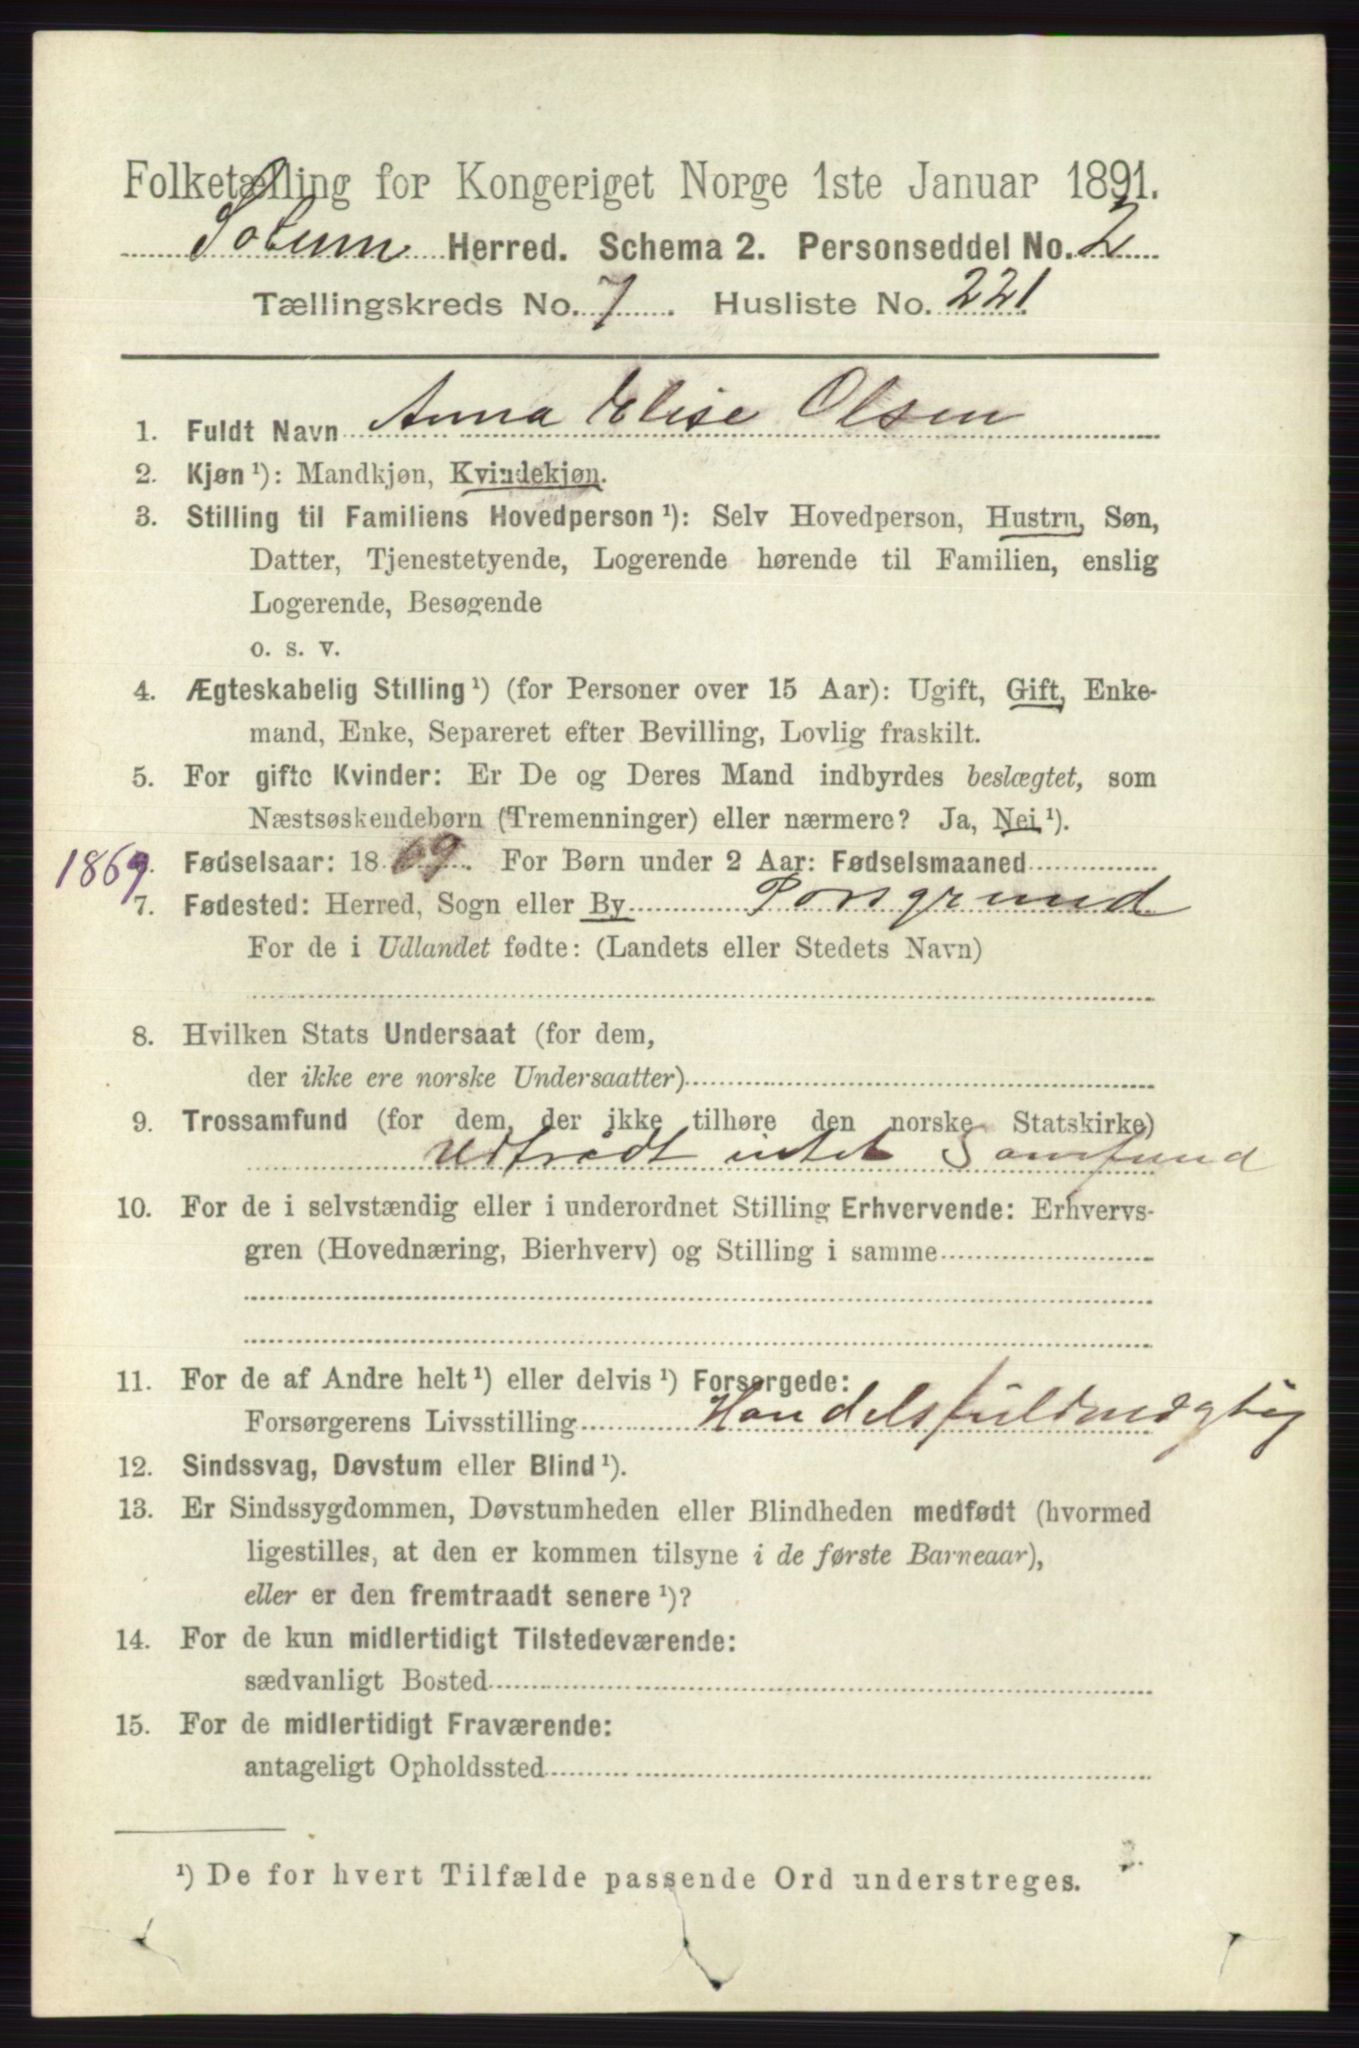 Folketælling for Kongeriget Norge 1ste Januar 1891.
Solum Herred. Schema 2. Personseddel No. 2
Tællingskreds No. 7. Husliste No. 221.
1. Fuldt Navn Anna Elise Olsen
2. Kjøn ¹): Mandkjøn, Kvindekjøn.
3. Stilling til Familiens Hovedperson ¹): Selv Hovedperson, Hustru, Søn,
Datter, Tjenestetyende, Logerende hørende til Familien, enslig
Logerende, Besøgende
o. s. v.
4. Ægteskabelig Stilling ¹) (for Personer over 15 Aar): Ugift, Gift, Enke-
mand, Enke, Separeret efter Bevilling, Lovlig fraskilt.
5. For gifte Kvinder: Er De og Deres Mand indbyrdes beslægtet, som
Næstsøskendebørn (Tremenninger) eller nærmere? Ja, Nei ¹).
1869 Fødselsaar: 1869. For Børn under 2 Aar: Fødselsmaaned
7. Fødested: Herred, Sogn eller By Porsgrund
For de i Udlandet fødte: (Landets eller Stedets Navn)
8. Hvilken Stats Undersaat (for dem,
der ikke ere norske Undersaatter)
9. Trossamfund (for dem, der ikke tilhøre den norske Statskirke)
Udtrådt intet Samfund
10. For de i selvstændig eller i underordnet Stilling Erhvervende: Erhvervs-
gren (Hovednæring, Bierhverv) og Stilling i samme
11. For de af Andre helt ¹) eller delvis ¹) Forsørgede:
Forsørgerens Livsstilling Handelsfuldmægtig
12. Sindssvag, Døvstum eller Blind ¹).
13. Er Sindssygdommen, Døvstumheden eller Blindheden medfødt (hvormed
ligestilles, at den er kommen tilsyne i de første Barneaar),
eller er den fremtraadt senere ¹)?
14. For de kun midlertidigt Tilstedeværende:
sædvanligt Bosted
15. For de midlertidigt Fraværende:
antageligt Opholdssted
¹) De for hvert Tilfælde passende Ord understreges.